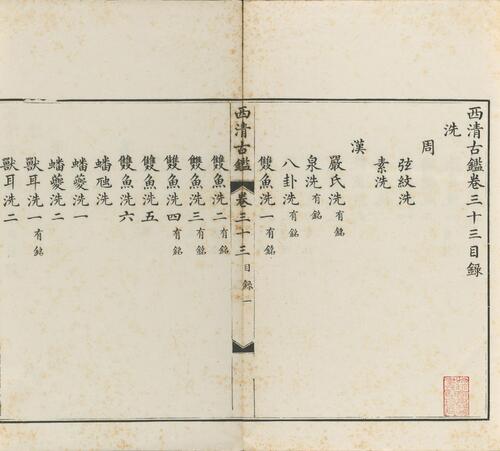 西清古鑑卷三十三目錄
洗
周
弦紋洗
素洗
漢
嚴氏洗有銘
泉洗有銘
八卦洗有銘
雙魚洗一有銘
西清古鑑 卷三十三 目錄 一
雙魚洗二有銘
雙魚洗三有銘
雙魚洗四有銘
雙魚洗五
雙魚洗六
蟠虺洗
蟠夔洗一
蟠夔洗二
獸耳洗一有銘
獸耳洗二